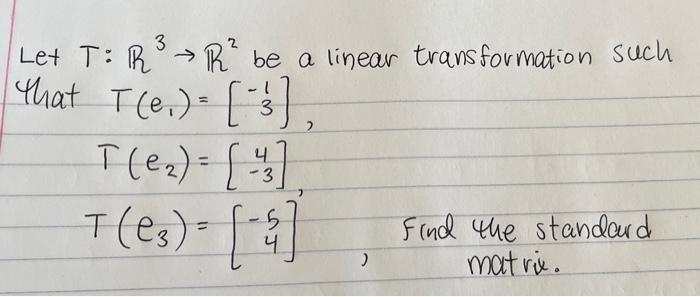 Let T: ℝ³ → ℝ² be a linear transformation such
that T(e₁) = [-1 3],
T(e₂) = [4 -3],
T(e₃) = [-5 4], Find the standard
matrix.